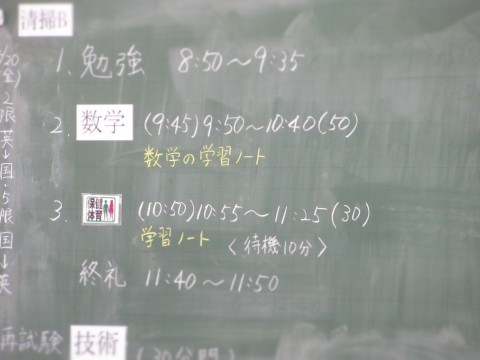 清掃B
/20
(金)
2限 英→国・5限 国→英
1. 勉強 8:50～9:35
2. 数学 (9:45) 9:50～10:40 (50)
数学の学習ノート
3. 保健体育 (10:50) 10:55～11:25 (30)
学習ノート 〈待機10分〉
終礼 11:40～11:50
再試験 技術 (30分間)